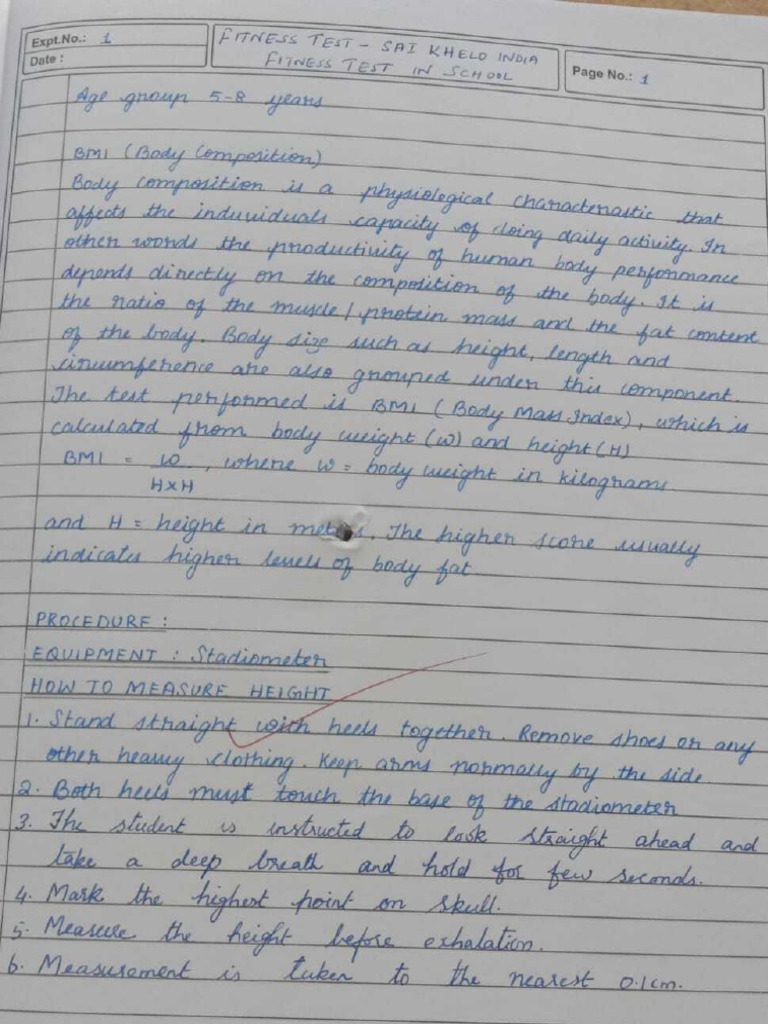 Expt.No.: 1
Date :
FITNESS TEST - SAI KHELO INDIA
FITNESS TEST IN SCHOOL
Page No.: 1
Age group 5-8 years
BMI (Body Composition)
Body composition is a physiological characteristic that
affects the individuals capacity of doing daily activity. In
other words the productivity of human body performance
depends directly on the composition of the body. It is
the ratio of the muscle / protein mass and the fat content
of the body. Body size such as height, length and
circumference are also grouped under this component.
The test performed is BMI (Body Mass Index), which is
calculated from body weight (w) and height (H)
BMI = w , where w = body weight in kilograms
H×H
and H = height in . The higher score usually
indicates higher levels of body fat
PROCEDURE :
EQUIPMENT : Stadiometer
HOW TO MEASURE HEIGHT
1. Stand straight with heels together. Remove shoes or any
other heavy clothing. Keep arms normally by the side.
2. Both heels must touch the base of the stadiometer
3. The student is instructed to look straight ahead and
take a deep breath and hold for few seconds.
4. Mark the highest point on skull.
5. Measure the height before exhalation.
6. Measurement is taken to the nearest 0.1cm.